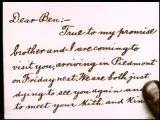 Dear Ben:-
True to my promise
brother and I are coming to
visit you, arriving in Piedmont
on Friday next. We are both just
dying to see you again and
to meet your kith, and kin